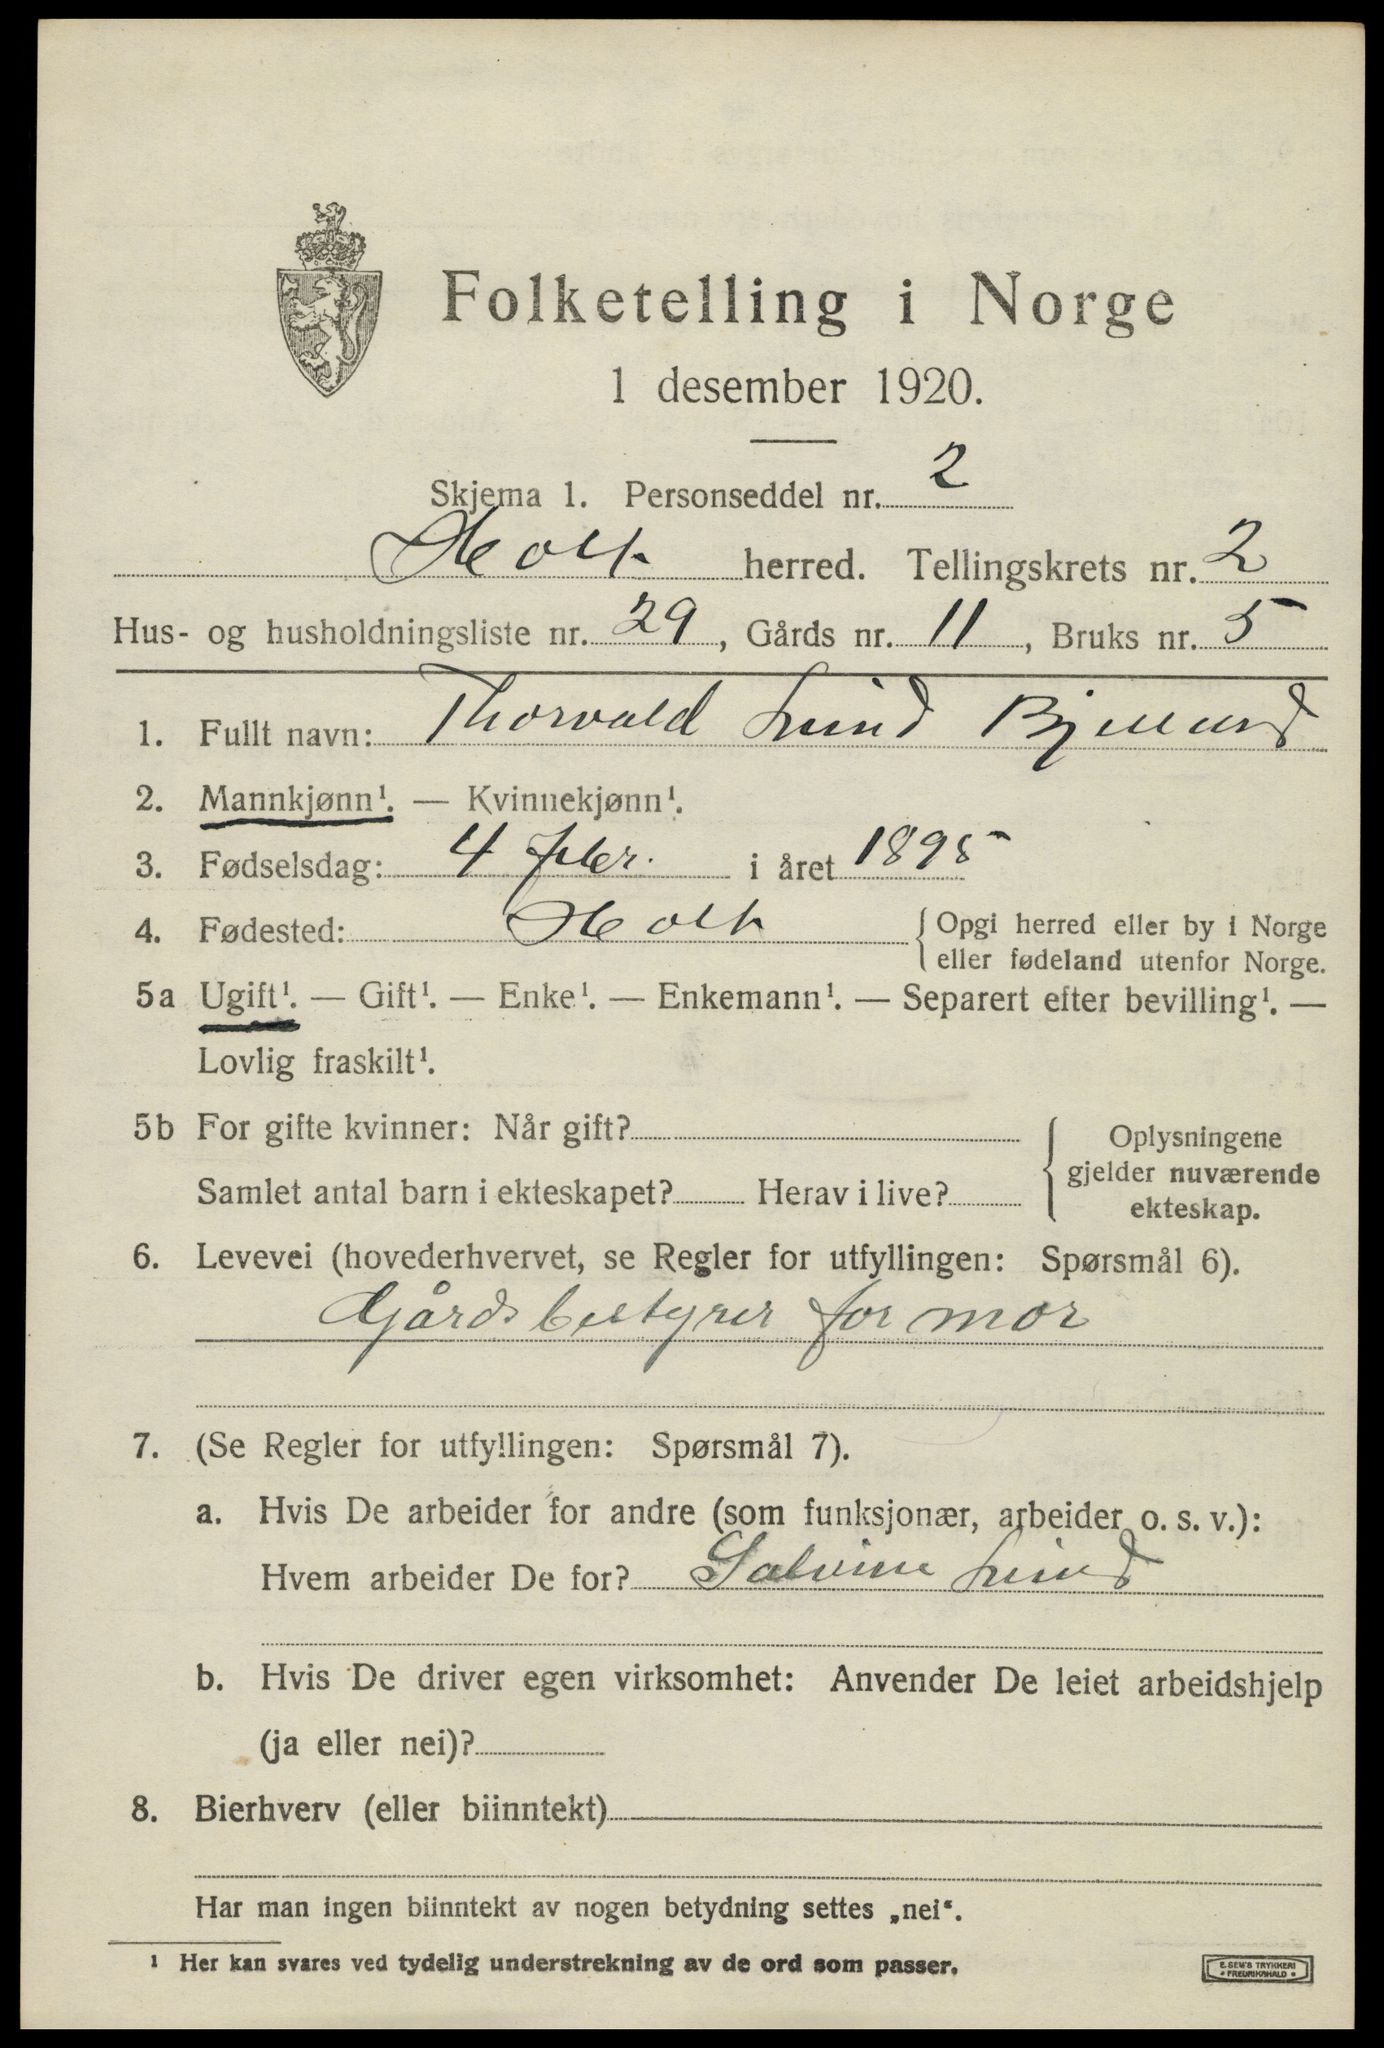 Folketelling i Norge
1 desember 1920.
Skjema 1. Personseddel nr. 2
Holt herred. Tellingskrets nr. 2
Hus- og husholdningsliste nr. 29, Gårds nr. 11, Bruks nr. 5
1. Fullt navn: Thorvald Lund
2. Mannkjønn¹. — Kvinnekjønn¹.
3. Fødselsdag: 4 febr. i året 1895
4. Fødested: Holt { Opgi herred eller by i Norge
eller fødeland utenfor Norge.
5a Ugift¹. — Gift¹. — Enke¹. — Enkemann¹. — Separert efter bevilling¹. —
Lovlig fraskilt¹.
5b For gifte kvinner: Når gift? { Oplysningene
gjelder nuværende
Samlet antal barn i ekteskapet? Herav i live?
ekteskap.
6. Levevei (hovederhvervet, se Regler for utfyllingen: Spørsmål 6).
Gårdsbestyrer for mor
7. (Se Regler for utfyllingen: Spørsmål 7).
a. Hvis De arbeider for andre (som funksjonær, arbeider o. s. v.):
Hvem arbeider De for? Salvine Lund
b. Hvis De driver egen virksomhet: Anvender De leiet arbeidshjelp
(ja eller nei)?
8. Bierhverv (eller biinntekt)
Har man ingen biinntekt av nogen betydning settes „nei“.
¹ Her kan svares ved tydelig understrekning av de ord som passer.
E. SEM'S TRYKKERI
• FREDRIKSHALD •